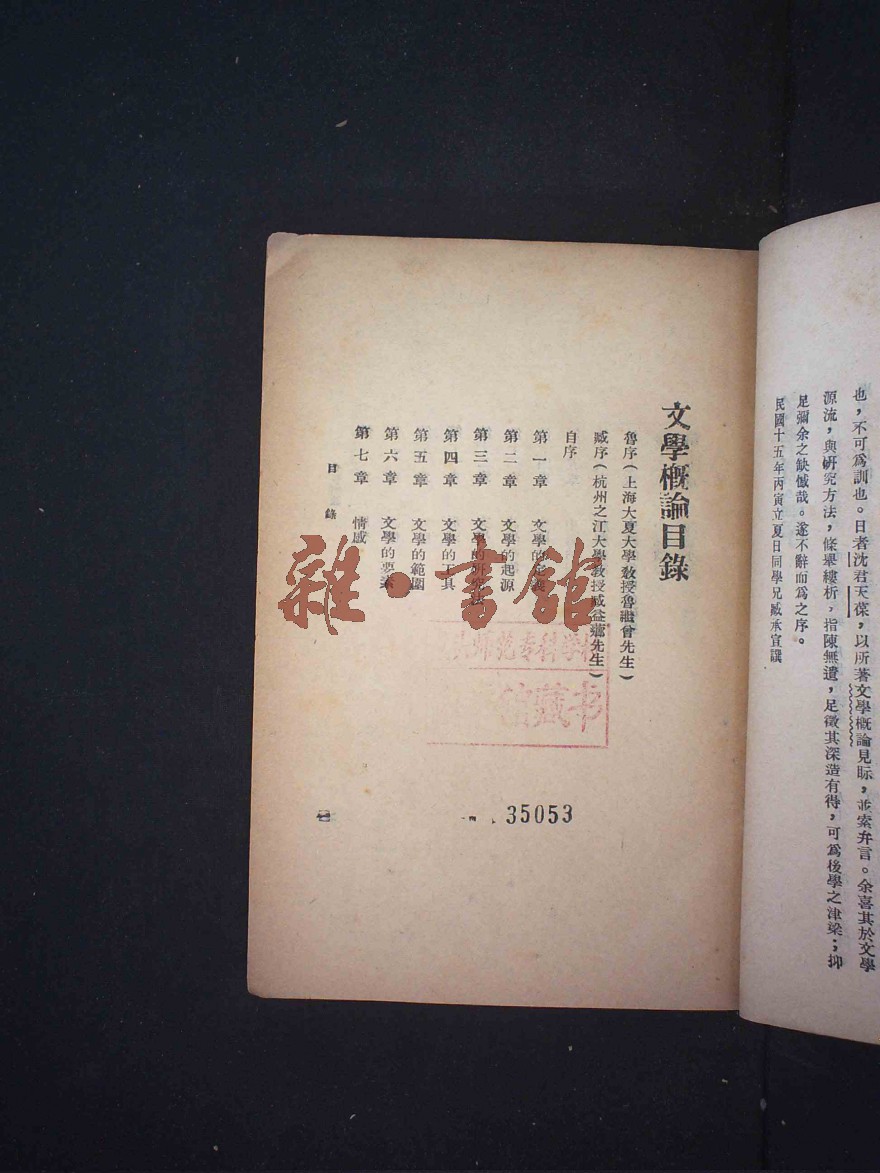 也，不可爲訓也。日者沈君天葆，以所著文學槪論見眎，並索弁言。余喜其於文學
源流，與硏究方法，條舉縷析，指陳無遺，足徵其深造有待，可爲後學之津梁；抑
足彌余之缺憾哉。遂不辭而爲之序。
民國十五年丙寅立夏日同學兄臧承宣譔
文學槪論目錄
魯序（上海大夏大學敎授魯繼曾先生）
臧序（杭州之江大學敎授臧益蘅先生）
自序
第一章 文學的定義
第二章 文學的起源
第三章 文學的硏究法
第四章 文學的工具
第五章 文學的範圍
第六章 文學的要素
第七章 情感
目錄
雜·書館
师范专科学校
书藏馆
35053